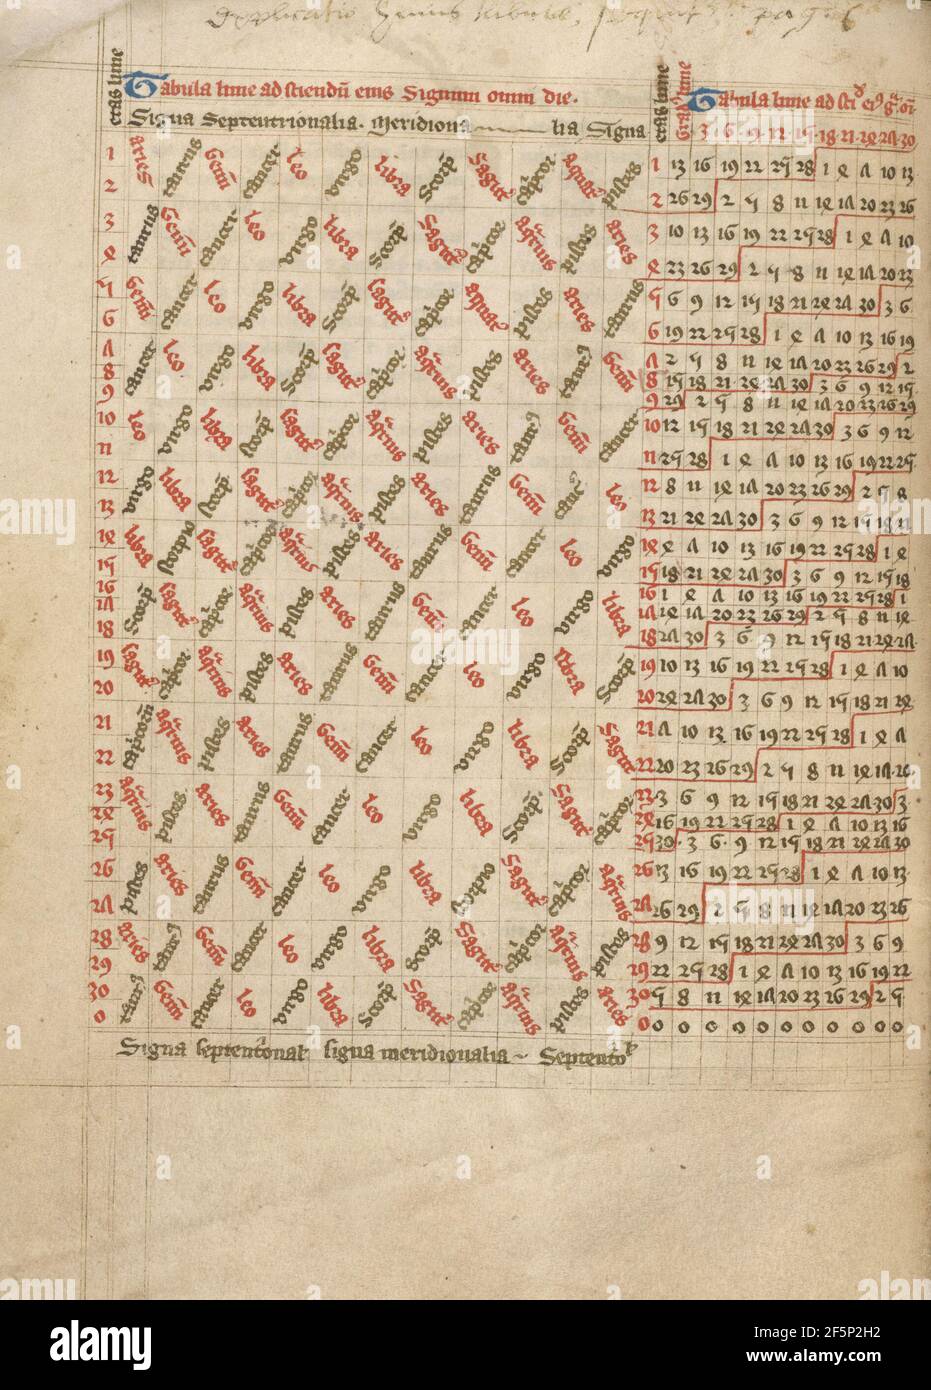 Explicatio hujus tabulae, sequit pag 6
etas lune
Tabula lune ad sciendū eius Signum omni die.
Signa Septentrionalia. Meridiona lia Signa
etas lune
Grad9 lune
Tabula lune ad
3 6 9 12 15 18 21 24 27 30
1 aries taurus Gemī cancer leo virgo libra Scorp̄ Sagitt capcor aquari pisces
2
3 taurus Gemī cancer leo virgo libra Scorp̄ Sagitt capcor aqrius pisces aries
4
5 Gemī cancer leo virgo libra Scorp̄ Sagitt capcor aquari pisces aries taurus
6
7 cancer leo virgo libra Scorp̄ Sagitt capcor aqrius pisces aries taur9 Gemī
8
9
10 leo virgo libra scorp̄ Sagitt capcor aqrius pisces aries taur9 Gemī cancer
11
12 virgo libra scorp̄ Sagitt capcor aqrius pisces aries taurus Gemī canc leo
13
14 libra scorpio Sagitt capcor aqrius pisces aries taurus Gemī cancer leo virgo
15
16 Scorp̄ Sagitt capcor aqrius pisces aries taurus Gemī cancer leo virgo libra
17
18
19 Sagitt capcor aqrius pisces aries taurus Gemī cancer leo virgo libra Scorp̄
20
21 capcorn aqrius pisces aries taurus Gemī cancer leo virgo libra Scorp̄ Sagitt
22
23 aqrius pisces aries taurus Gemī cancer leo virgo libra Scorp̄ Sagitt capcor
24
25
26 pisces aries taurus Gemī cancer leo virgo libra scorpio Sagitt capcor aqrius
27
28 aries taur9 Gemī cancer leo virgo libra scorp̄ Sagitt capcor aqrius pisces
29
30 taur9 Gemī cancer leo virgo libra Scorp̄ Sagitt capcor aqrius pisces aries
0
1 13 16 19 22 25 28 1 4 7 10 13
2 26 29 2 5 8 11 14 17 20 23 26
3 10 13 16 19 22 25 28 1 4 7 10
4 23 26 29 2 5 8 11 14 17 20 23
5 6 9 12 15 18 21 24 27 30 3 6
6 19 22 25 28 1 4 7 10 13 16 19
7 2 5 8 11 14 17 20 23 26 29 2
8 15 18 21 24 27 30 3 6 9 12 15
9 29 2 5 8 11 14 17 20 23 26 29
10 12 15 18 21 24 27 30 3 6 9 12
11 25 28 1 4 7 10 13 16 19 22 25
12 8 11 14 17 20 23 26 29 2 5 8
13 21 24 27 30 3 6 9 12 15 18 21
14 4 7 10 13 16 19 22 25 28 1 4
15 18 21 24 27 30 3 6 9 12 15 18
16 1 4 7 10 13 16 19 22 25 28 1
17 14 17 20 23 26 29 2 5 8 11 14
18 27 30 3 6 9 12 15 18 21 24 27
19 10 13 16 19 22 25 28 1 4 7 10
20 24 27 30 3 6 9 12 15 18 21 24
21 7 10 13 16 19 22 25 28 1 4 7
22 20 23 26 29 2 5 8 11 14 17 20
23 3 6 9 12 15 18 21 24 27 30 3
24 16 19 22 25 28 1 4 7 10 13 16
25 30 3 6 9 12 15 18 21 24 27 30
26 13 16 19 22 25 28 1 4 7 10 13
27 26 29 2 5 8 11 14 17 20 23 26
28 9 12 15 18 21 24 27 30 3 6 9
29 22 25 28 1 4 7 10 13 16 19 22
30 5 8 11 14 17 20 23 26 29 2 5
0 0 0 0 0 0 0 0 0 0 0 0
Signa septentonal signa meridionalia ~ Septento
alamy
Image ID: 2F5P2H2
www.alamy.com